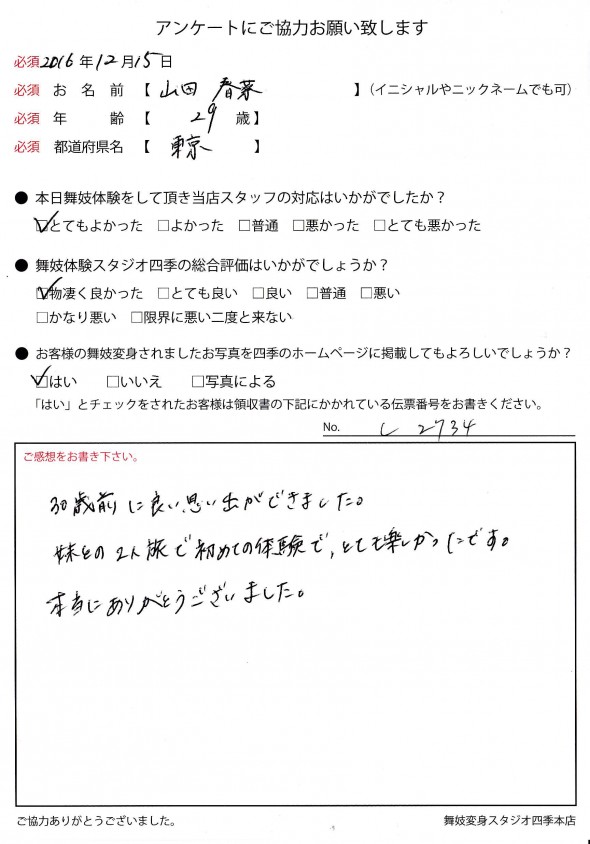 アンケートにご協力お願い致します
必須2016年12月15日
必須 お名前【 山田 春菜 】（イニシャルやニックネームでも可）
必須 年齢【 29 歳】
必須 都道府県名【 東京 】
● 本日舞妓体験をして頂き当店スタッフの対応はいかがでしたか？
☑とてもよかった □よかった □普通 □悪かった □とても悪かった
● 舞妓体験スタジオ四季の総合評価はいかがでしょうか？
☑物凄く良かった □とても良い □良い □普通 □悪い
□かなり悪い □限界に悪い二度と来ない
● お客様の舞妓変身されましたお写真を四季のホームページに掲載してもよろしいでしょうか？
☑はい □いいえ □写真による
「はい」とチェックをされたお客様は領収書の下記にかかれている伝票番号をお書きください。
No. し 2734
ご感想をお書き下さい。
30歳前に良い思い出ができました。
妹との2人旅で初めての体験で、とても楽しかったです。
本当にありがとうございました。
ご協力ありがとうございました。 舞妓変身スタジオ四季本店